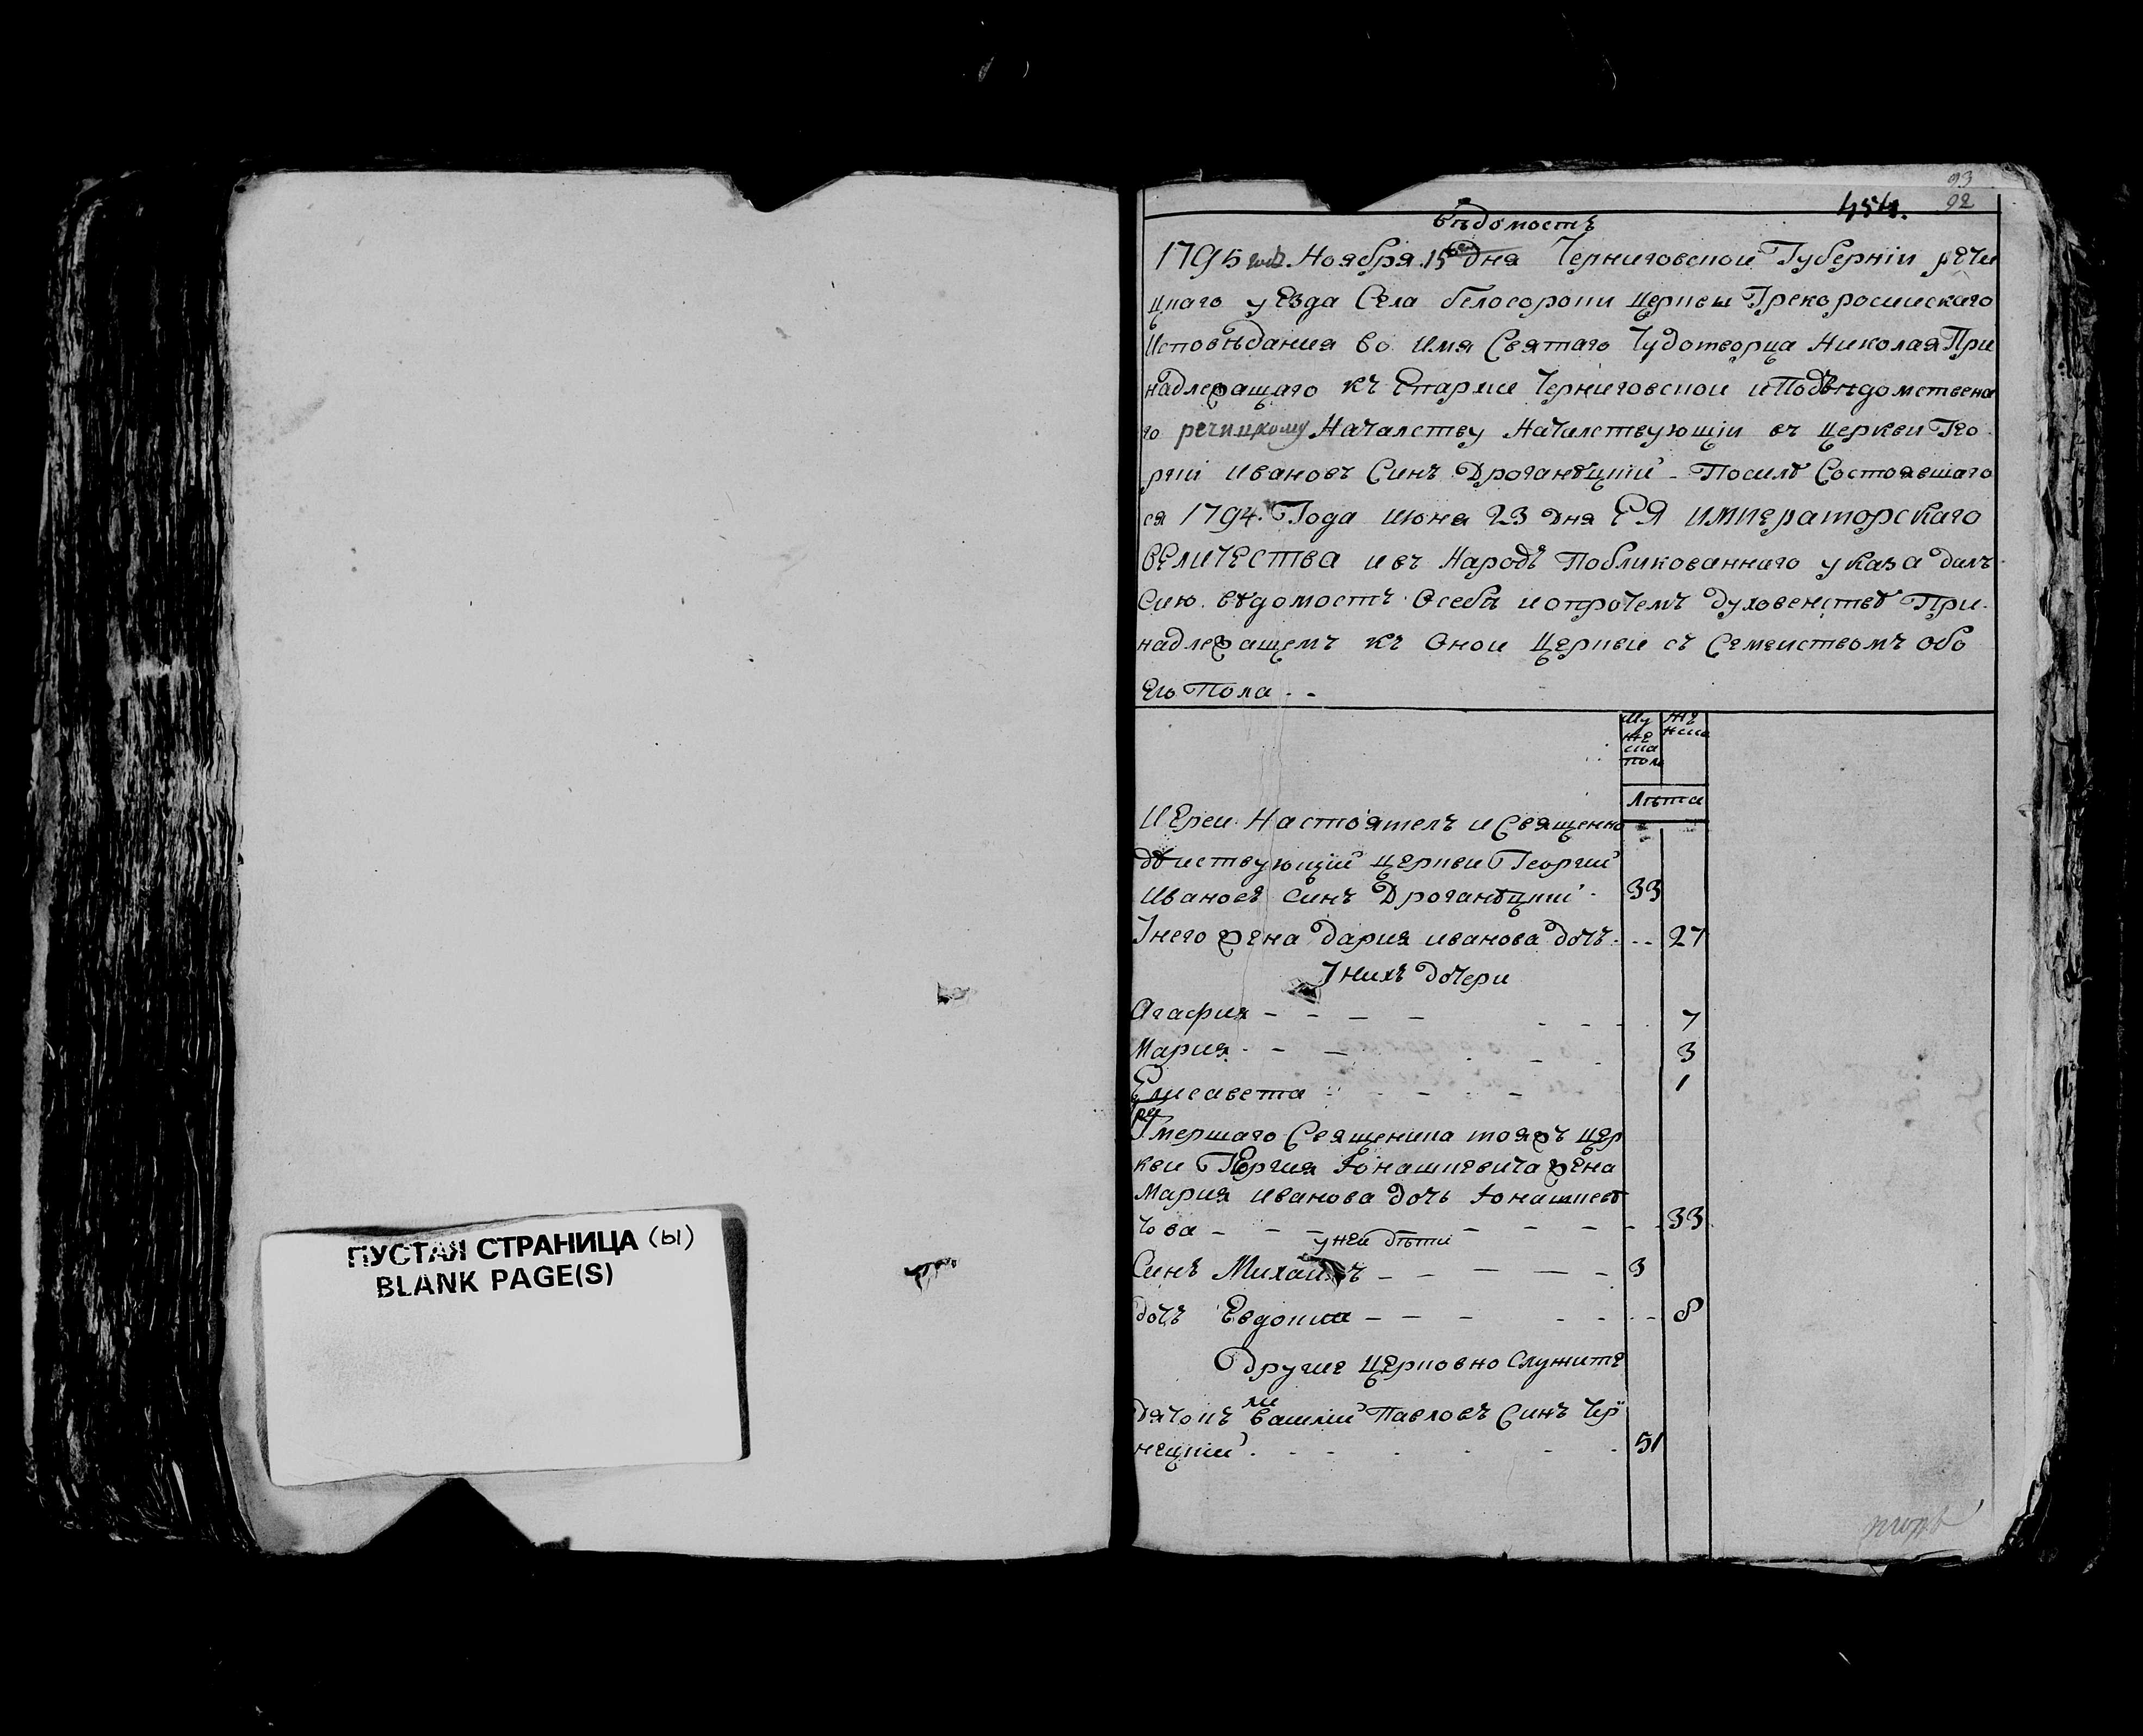 ПУСТАЯ СТРАНИЦА (ы)
BLANK PAGE(S)
93
92
454.
вѣдомость
1795 года Ноября 15 дня Черниговской Губерніи речи
цкаго уезда Села белосороки церкви Грекоросииского
Исповѣдания во имя Святаго Чудотворца Николая При
надлежащаго къ Епархии Черниговской и Подвѣдомствена
го речицкому Началству Началствующіи въ церкви Гео
ргіи Ивановъ Синъ Дроганѣцкій - Посилѣ Состоявшаго
ся 1794. Года июня 23 дня ЕЯ ИМПЕраторскаго
ВЕЛИЧЕСТВА и въ Народъ Побликованнаго указа далъ
Сию вѣдомость Осебѣ и опрочемъ духовенствѣ При
надлежащемъ къ Оной Церкви съ Семеиствомъ обо
его Пола . -
Му
же
ска
пола
Же
нска
Лѣта
ИЕреи Настоятель и Священно
дѣиствующій церкви Георгий
Ивановъ синъ Дроганѣцкій - 33
Унего жена Дария иванова дочъ . - - 27
Унихъ дочери
Агафия - - - - - - - 7
Мария - - - - - 3
Елисавета - - - - - 1
Умершаго Священика тояжъ цер
кви Георгия Юнашкевича жена
Мария Иванова дочь Юнашкев
чова - - - - - - - - 33
у неи дѣти
Синъ Михаилъ - - - - - 3
дочъ Евдокия - - - - - - - 8
Другие церковно Служите
ли
дячокъ Василій Павловъ Синъ Чер
нецкій . - - - - - 51